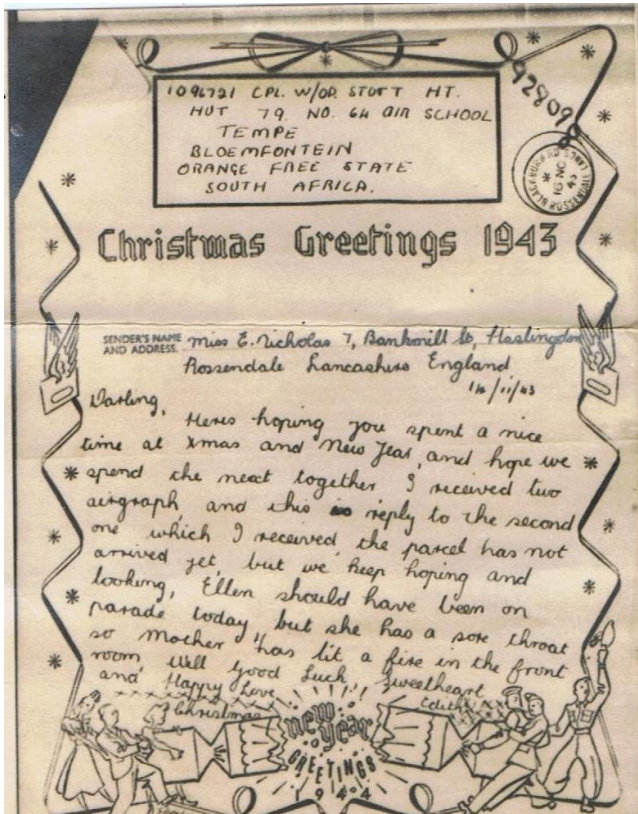 1096721 CPL. W/OP. STOTT HT.
HUT 79. NO. 64 AIR SCHOOL
TEMPE
BLOEMFONTEIN
ORANGE FREE STATE
SOUTH AFRICA.
92809
ROSSENDALE BLACKBURN LANCS
16 NO
43
Christmas Greetings 1943
SENDER'S NAME AND ADDRESS. Miss E. Nicholas 7, Bankmill St, Haslingden
Rossendale Lancashire England
14/11/43
Darling,
Heres hoping you spent a nice
time at Xmas and New Year, and hope we
spend the next together I received two
airgraph, and this is reply to the second
one which I received, the parcel has not
arrived yet, but we keep hoping and
looking, Ellen should have been on
parade today but she has a sore throat
so Mother has lit a fire in the front
room, Well Good Luck, Sweetheart
and Happy Love Edith
Christmas
new
year
GREETINGS
1944